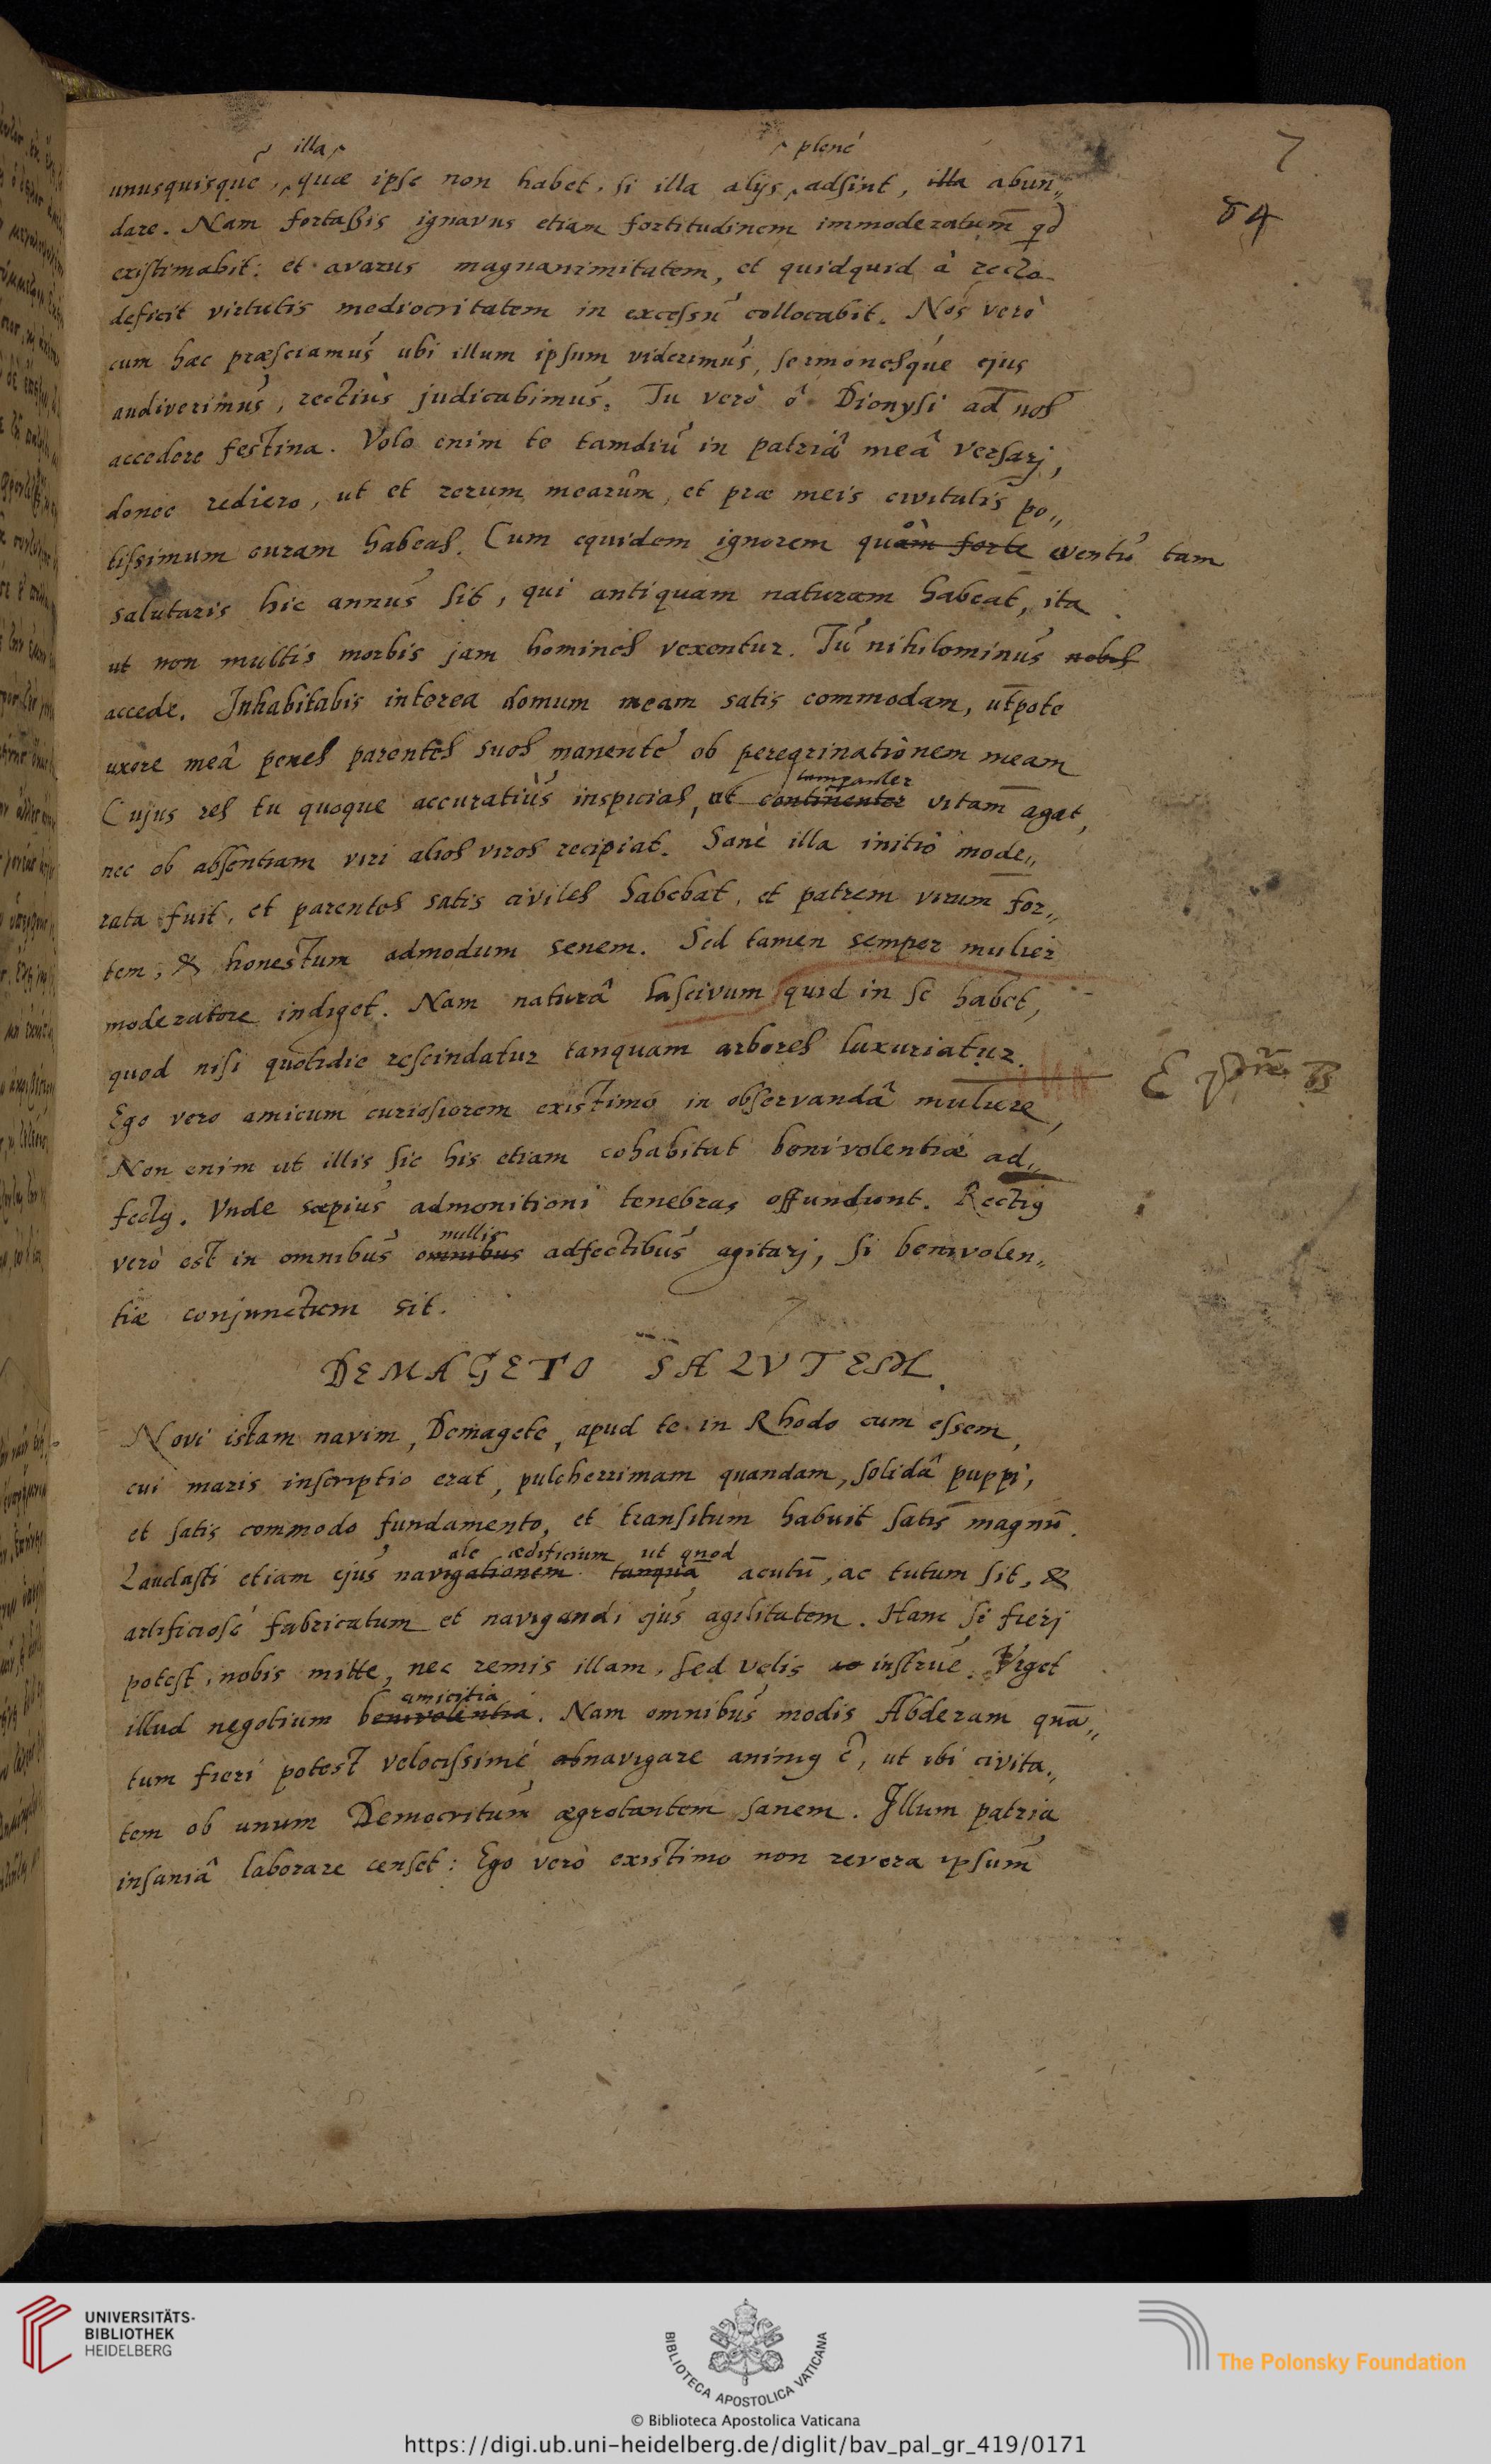 7
84
illa plenè
unusquisque, quæ ipse non habet, si illa alijs adsint, illa abun„
dare. Nam fortaßis ignavus etiam fortitudinem immoderatum qd
existimabit: et avarus magnanimitatem, et quidquid à recto
deficit virtutis mediocritatem in excessu collocabit. Nos verò
cum hæc præsciamus ubi illum ipsum viderimus, sermonesque ejus
audiverimus, rectiùs judicabimus. Tu verò ô Dionysi ad nos
accedere festina. Volo enim te tamdiu in patriâ meâ versarj,
donec rediero, ut et rerum mearum, et præ meis civitatis po„
tissimum curam habeas. Cum equidem ignorem quàm forte eventu tam
salutaris hic annus sit, qui antiquam naturam habeat, ita
ut non multis morbis jam homines vexentur. Tu nihilominus nobis
accede. Inhabitabis interea domum meam satis commodam, utpote
uxore meâ penes parentes suos manente ob peregrinationem meam
temperanter
Cujus res tu quoque accuratiùs inspicias, ut continenter vitam agat,
nec ob absentiam viri alios viros recipiat. Sanè illa initio mode„
rata fuit, et parentes satis civiles habebat, et patrem virum for„
tem, & honestum admodum senem. Sed tamen semper mulier
moderatore indiget. Nam naturâ lascivum quid in se habet,
quod nisi quotidie rescindatur tanquam arbores luxuriatur.
Ego vero amicum curiosiorem existimo in observandâ muliere,
Non enim ut illis sic his etiam cohabitat benivolentiæ ad„
fectg. Vnde sæpius admonitioni tenebras offundunt. Rectig
nullis
verò est in omnibus omnibus adfectibus agitarj, si benivolen„
tiæ conjunctum sit.
DEMAGETO SALVTEM.
Novi istam navim, Demagete, apud te in Rhodo cum essem,
cui maris inscriptio erat, pulcherrimam quandam, solidâ puppi,
et satis commodo fundamento, et transitum habuit satis magnū.
ale ædificium ut quod
Laudasti etiam ejus navigationem tanquā acutū, ac tutum sit, &
artificiosè fabricatum et navigandi ejus agilitatem. Hanc si fierj
potest, nobis mitte, nec remis illam, sed velis instrue. Vrget
amicitia
illud negotium benivolentia. Nam omnibus modis Abderam quā„
tum fieri potest velocissimè abnavigare animg ẽ, ut ibi civita„
tem ob unum Democritum ægrotantem sanem. Illum patria
insaniâ laborare censet: Ego verò existimo non revera ipsum
UNIVERSITÄTS-
BIBLIOTHEK
HEIDELBERG
BIBLIOTECA APOSTOLICA VATICANA
The Polonsky Foundation
© Biblioteca Apostolica Vaticana
https://digi.ub.uni-heidelberg.de/diglit/bav_pal_gr_419/0171